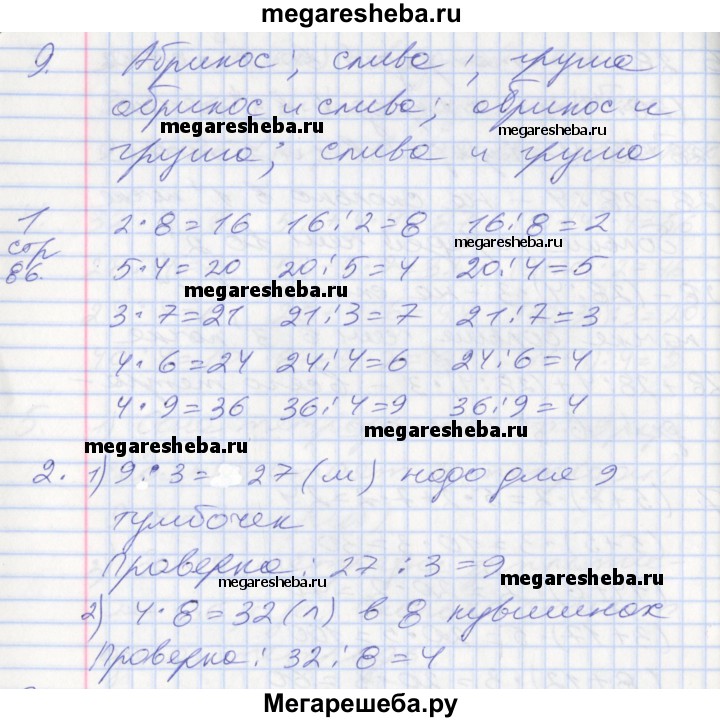 megaresheba.ru
9. Абрикос; слива; груша
абрикос и слива; абрикос и
megaresheba.ru megaresheba.ru
груша; слива и груша
1 2·8=16 16:2=8 16:8=2
стр megaresheba.ru
86. 5·4=20 20:5=4 20:4=5
megaresheba.ru
3·7=21 21:3=7 21:7=3
4·6=24 24:4=6 24:6=4
4·9=36 36:4=9 36:9=4
megaresheba.ru megaresheba.ru
2. 1) 9·3= 27 (м) надо для 9
тумбочек
Проверка: 27:3=9
megaresheba.ru megaresheba.ru
2) 4·8=32 (л) в 8 кувшинах
Проверка: 32:8=4
Мегарешеба.ру